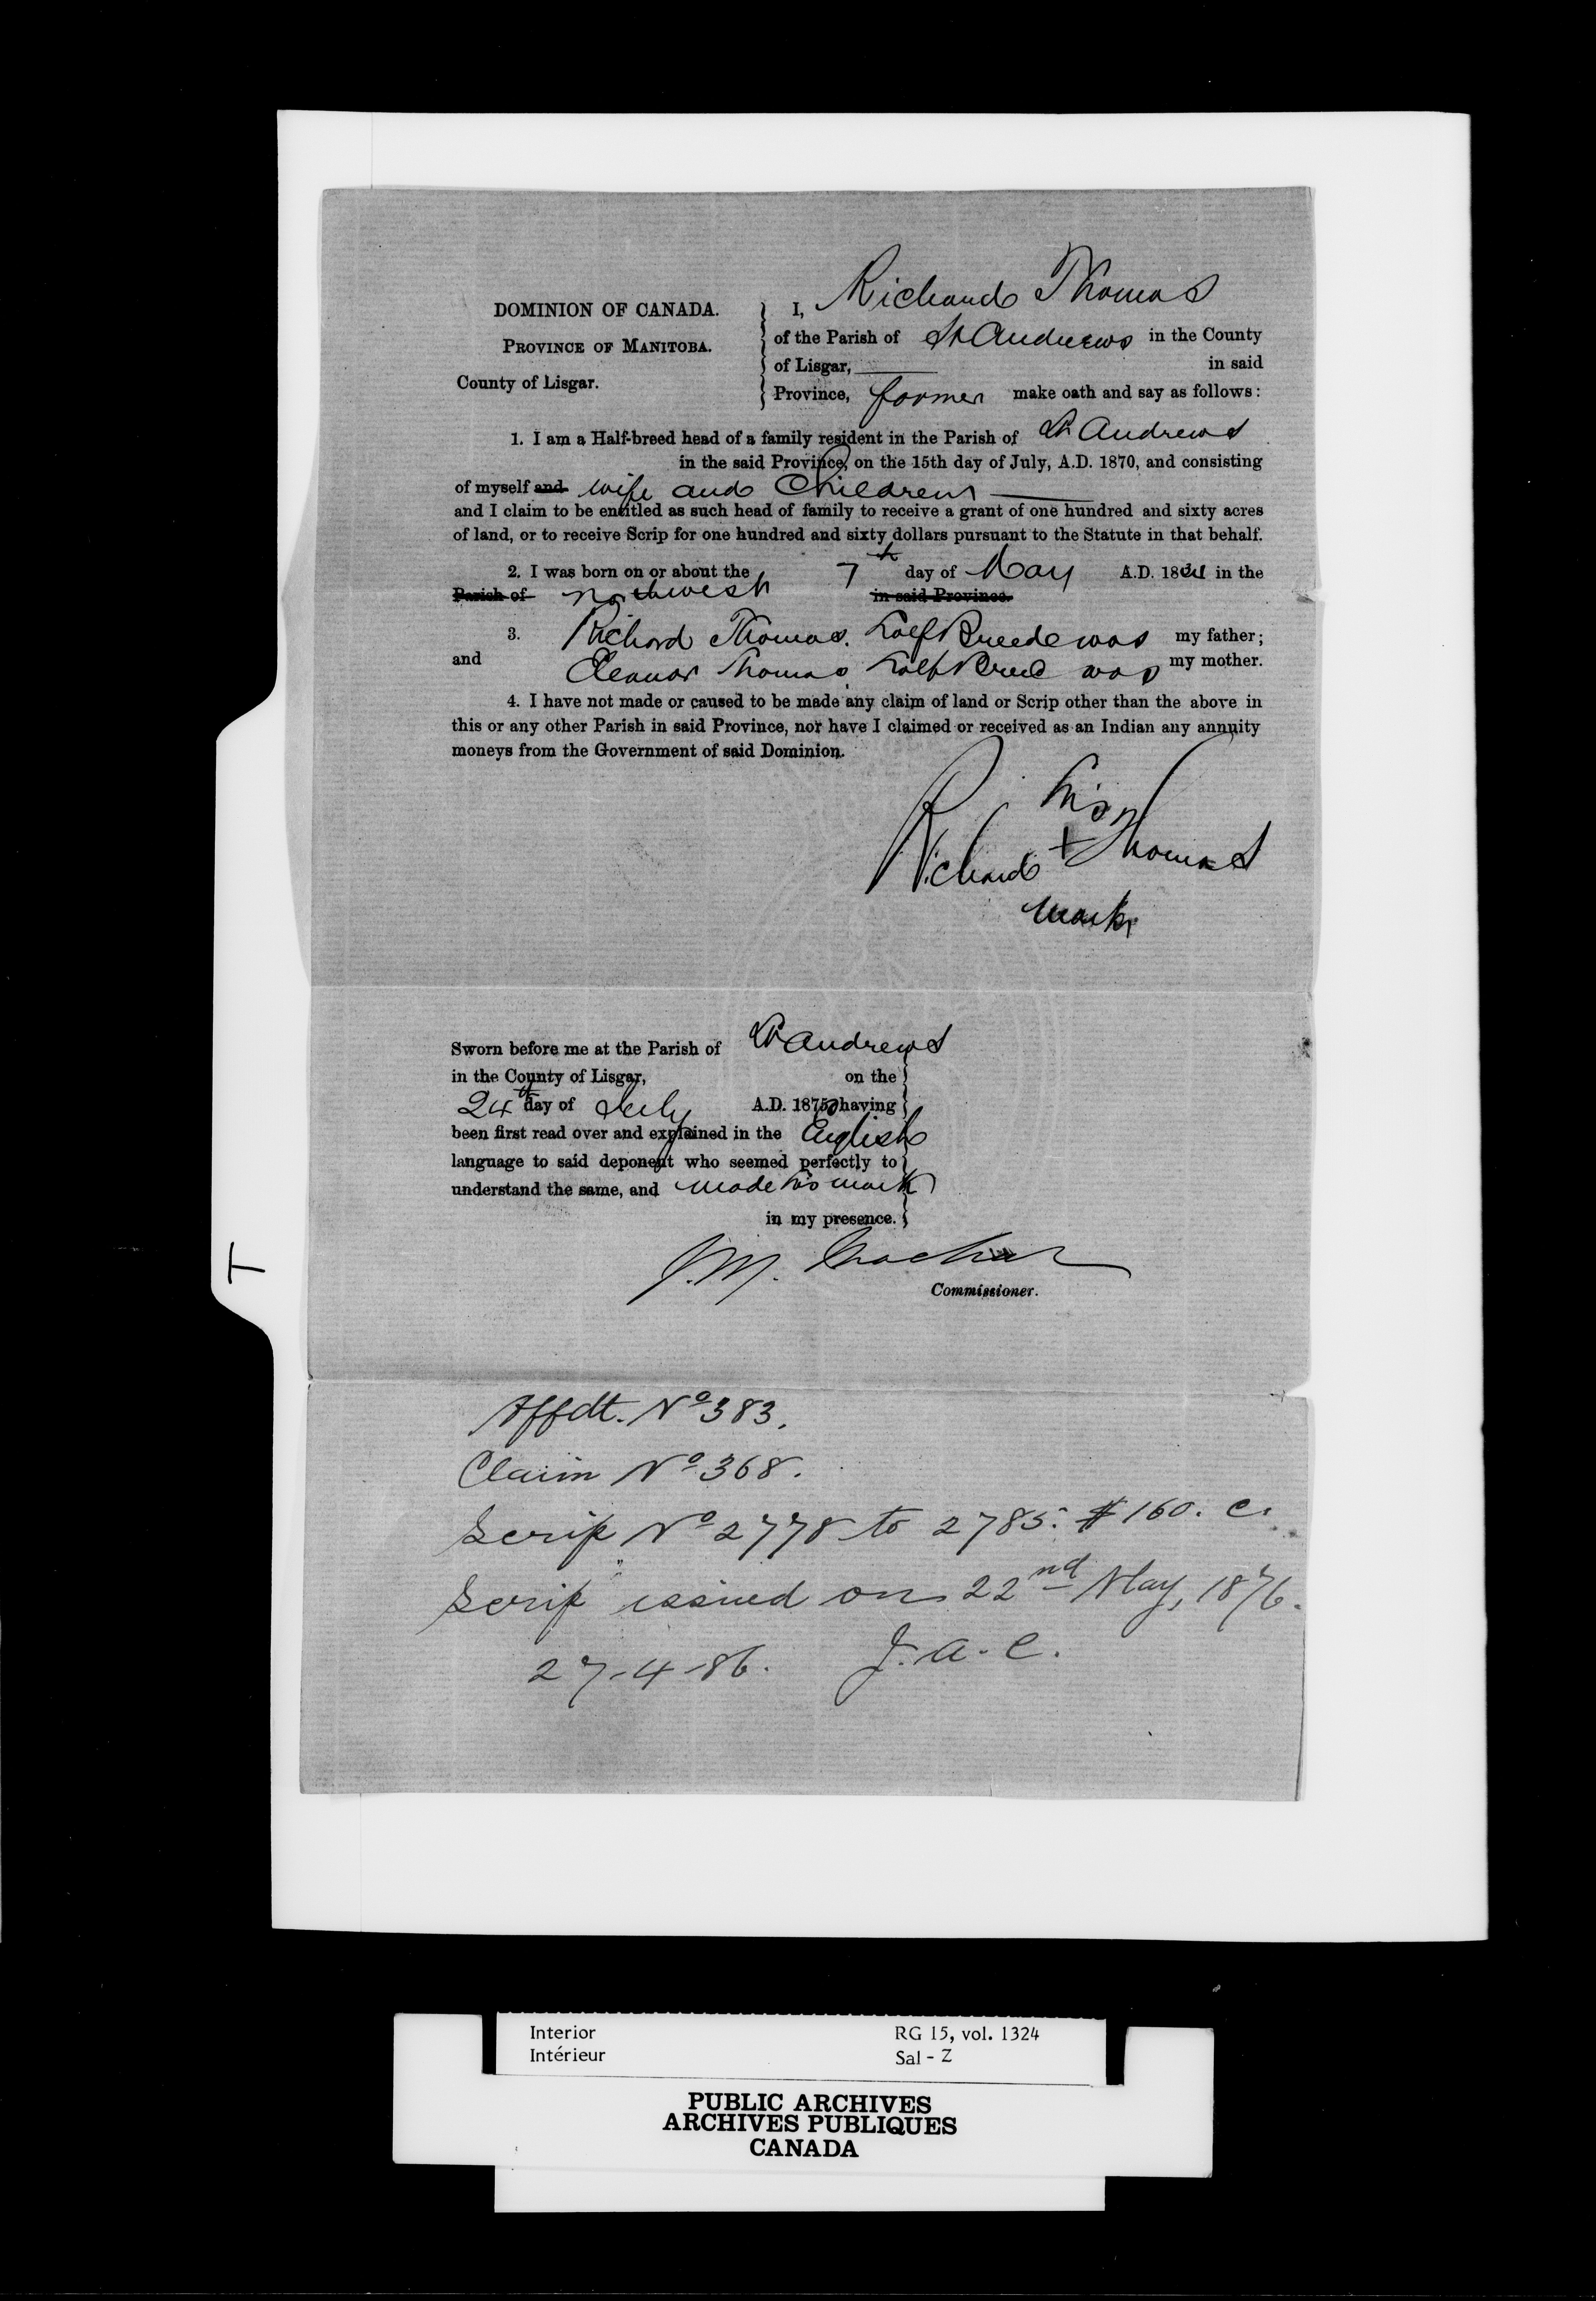 I, Richard Thomas
DOMINION OF CANADA.
of the Parish of St Andrews in the County
PROVINCE OF MANITOBA.
of Lisgar, in said
County of Lisgar.
Province, farmer make oath and say as follows:
1. I am a Half-breed head of a family resident in the Parish of St Andrews
in the said Province, on the 15th day of July, A.D. 1870, and consisting
of myself and wife and Children
and I claim to be entitled as such head of family to receive a grant of one hundred and sixty acres
of land, or to receive Scrip for one hundred and sixty dollars pursuant to the Statute in that behalf.
2. I was born on or about the 7th day of May A.D. 18 in the
Parish of Northwest in said Province.
3. Richard Thomas. Half Breed was my father;
and Eleanor Thomas, Half Breed was my mother.
4. I have not made or caused to be made any claim of land or Scrip other than the above in
this or any other Parish in said Province, nor have I claimed or received as an Indian any annuity
moneys from the Government of said Dominion.
his
Richard + Thomas
mark
Sworn before me at the Parish of St Andrews
in the County of Lisgar, on the
24th day of July A.D. 1875, having
been first read over and explained in the English
language to said deponent who seemed perfectly to
understand the same, and made his mark
in my presence.
J. M. Machar
Commissioner.
T
Affdt. No 383.
Claim No 368.
Scrip No 2778 to 2785: $160. C.
Scrip issued on 22nd May, 1876.
27-4-86. J. A. C.
Interior RG 15, vol. 1324
Intérieur Sal - Z
PUBLIC ARCHIVES
ARCHIVES PUBLIQUES
CANADA